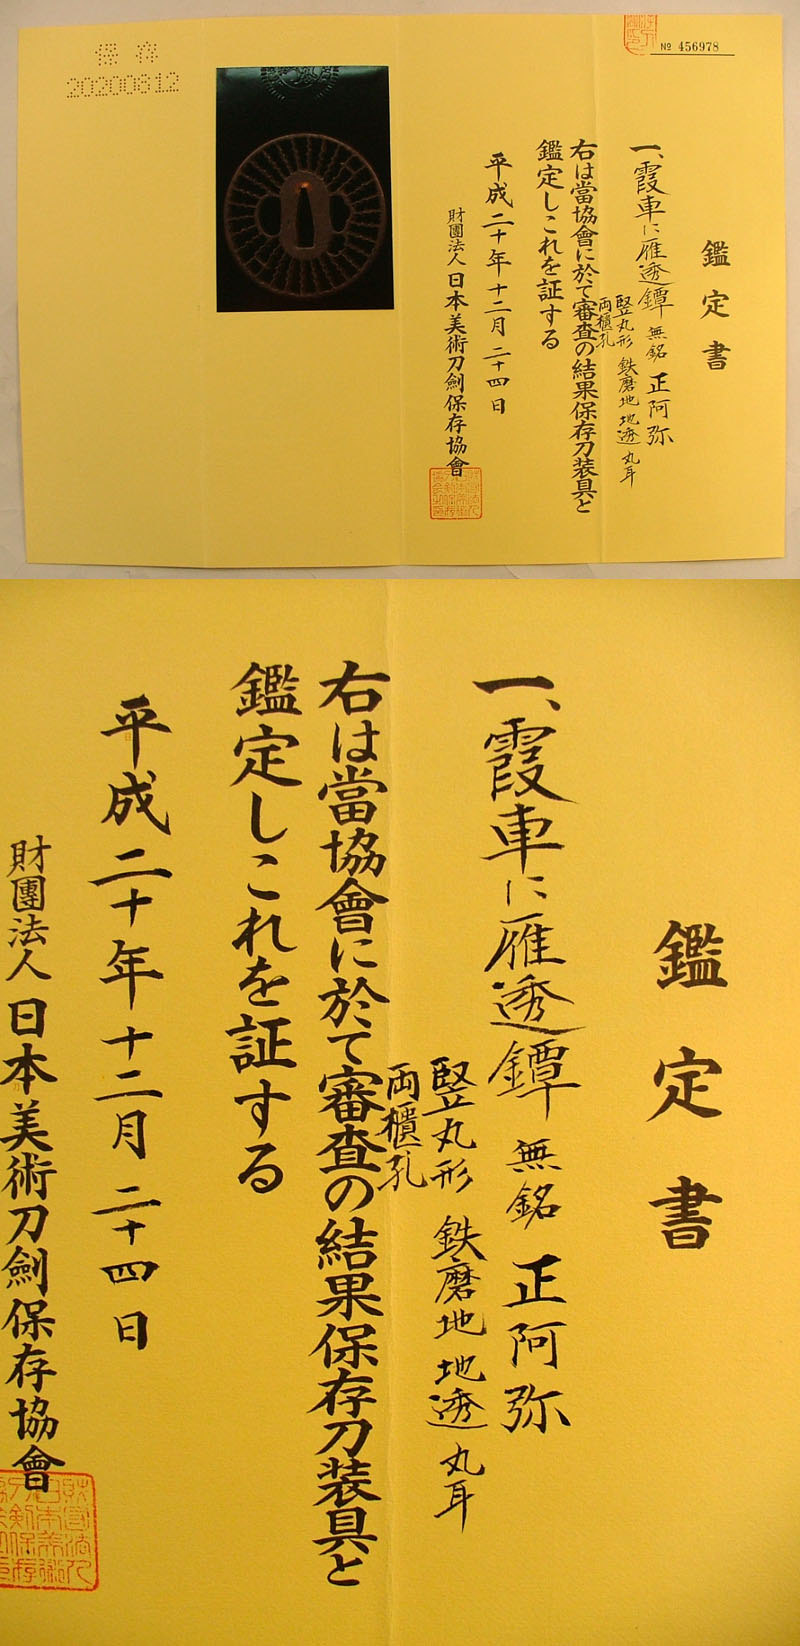 保存
20200812
№ 456978
鑑定書
一、霞車に雁透鐔 無銘 正阿弥
竪丸形 鉄磨地 地透 丸耳
両櫃孔
右は當協會に於て審査の結果保存刀装具と
鑑定しこれを証する
平成二十年十二月二十四日
財團法人日本美術刀劍保存協會
鑑定書
一、霞車に雁透鐔 無銘 正阿弥
竪丸形 鉄磨地 地透 丸耳
両櫃孔
右は當協會に於て審査の結果保存刀装具と
鑑定しこれを証する
平成二十年十二月二十四日
財團法人日本美術刀劍保存協會